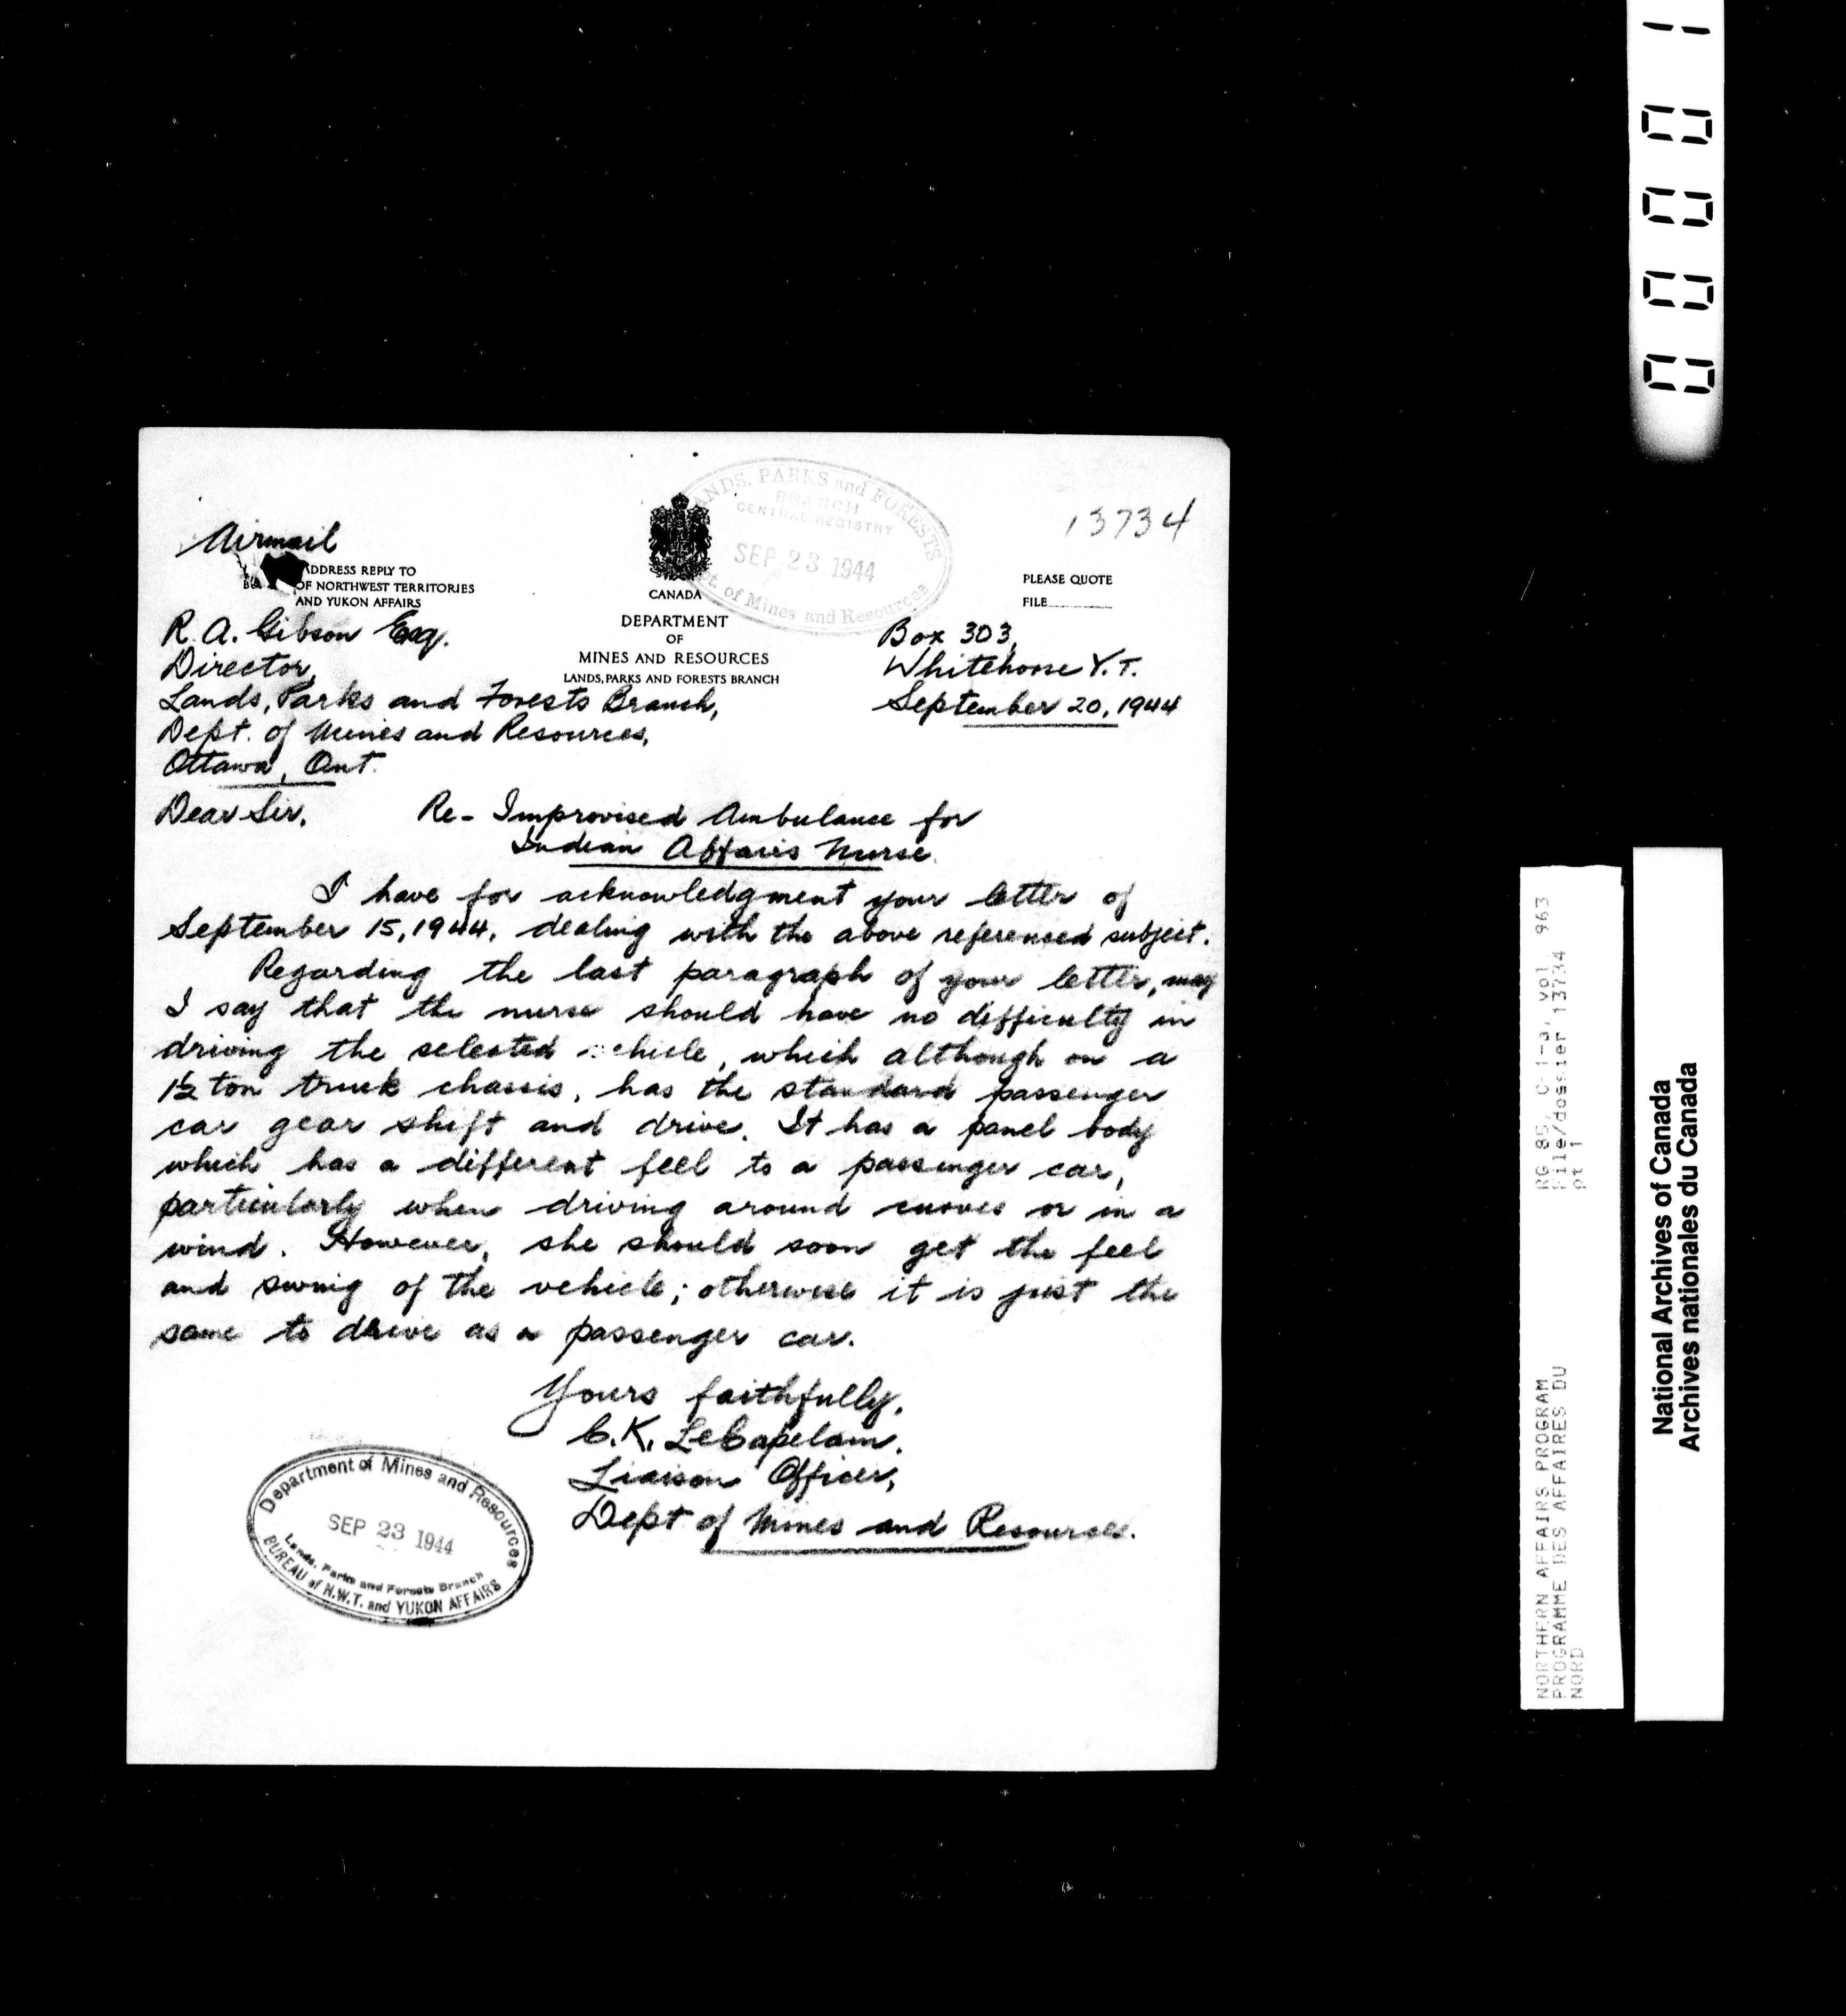 LANDS, PARKS and FORESTS
BRANCH
CENTRAL REGISTRY
SEP 23 1944
Dept. of Mines and Resources
13734
Airmail
ADDRESS REPLY TO
OF NORTHWEST TERRITORIES
AND YUKON AFFAIRS
CANADA
DEPARTMENT
OF
MINES AND RESOURCES
LANDS, PARKS AND FORESTS BRANCH
PLEASE QUOTE
FILE
R. A. Gibson Esq.
Director,
Lands, Parks and Forests Branch,
Dept. of Mines and Resources,
Ottawa, Ont.
Box 303,
Whitehorse Y.T.
September 20, 1944
Dear Sir,
Re- Improvised Ambulance for
Indian Affairs Nurse.
I have for acknowledgment your letter of
September 15, 1944, dealing with the above referenced subject.
Regarding the last paragraph of your letter, may
I say that the nurse should have no difficulty in
driving the selected vehicle, which although on a
1½ ton truck chassis, has the standard passenger
car gear shift and drive. It has a panel body
which has a different feel to a passenger car,
particularly when driving around curves or in a
wind. However, she should soon get the feel
and swing of the vehicle; otherwise it is just the
same to drive as a passenger car.
Yours faithfully,
C. K. LeCapelain.
Liaison Officer,
Dept of Mines and Resources.
Department of Mines and Resources
SEP 23 1944
Lands, Parks and Forests Branch
BUREAU of N.W.T. and YUKON AFFAIRS
RG 85, C-1-a, vol 963
File/dossier 13734
pt 1
NORTHERN AFFAIRS PROGRAM
PROGRAMME DES AFFAIRES DU
NORD
National Archives of Canada
Archives nationales du Canada